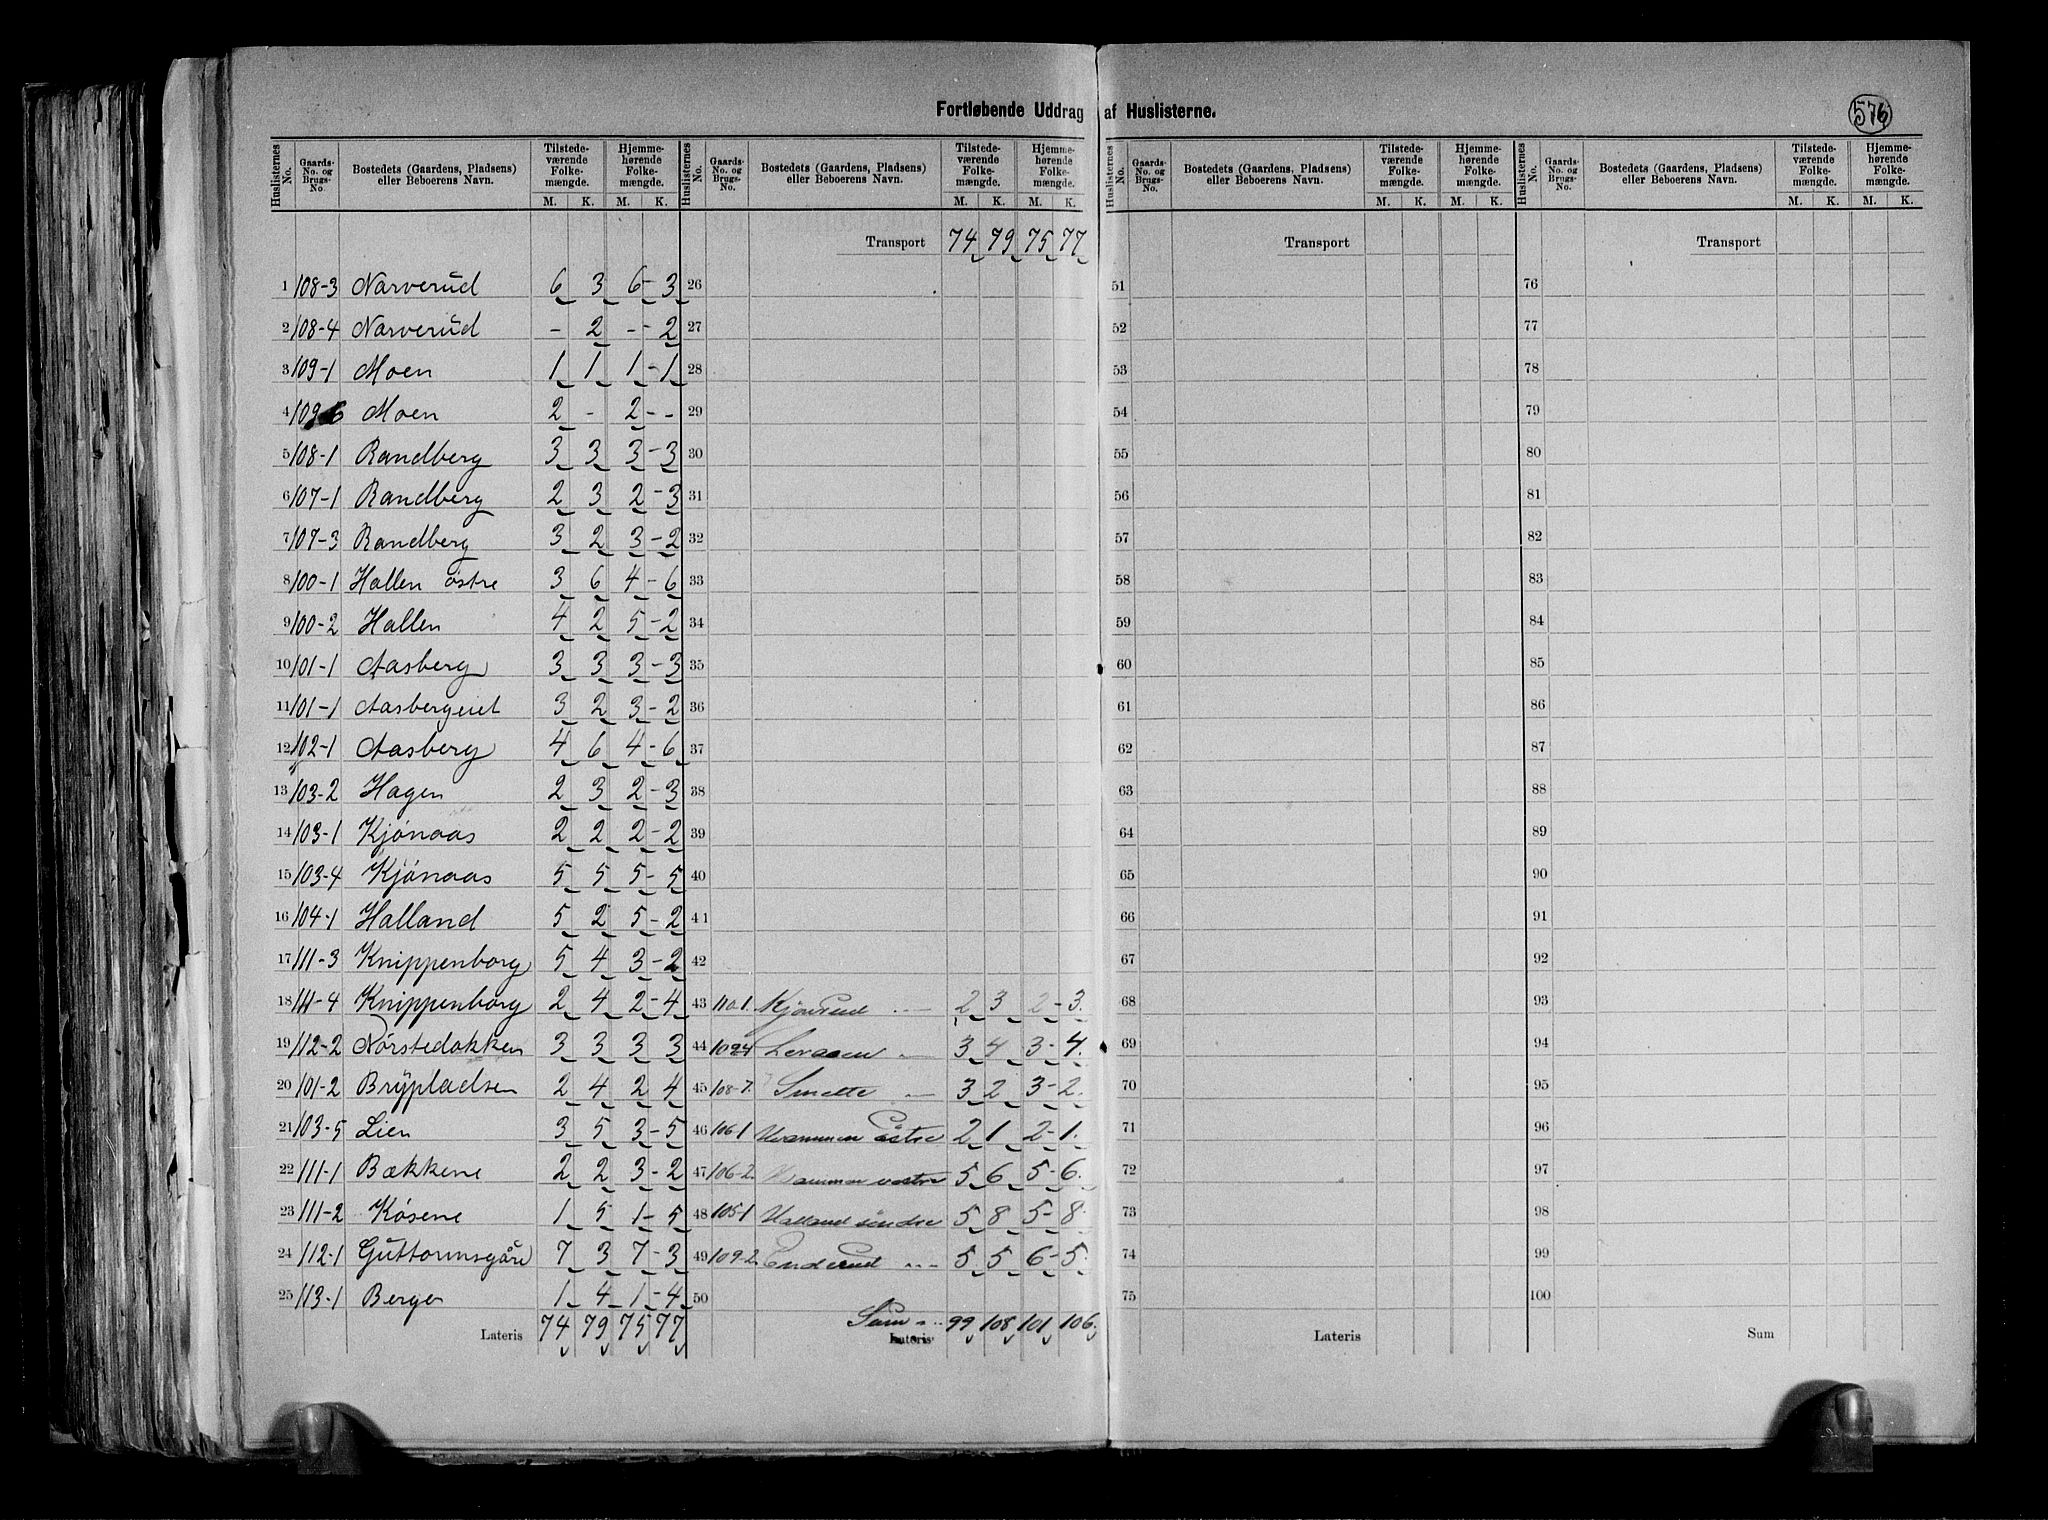 Fortløbende Uddrag af Huslisterne.
576
Huslisternes No. Gaards-No. og Brugs-No. Bostedets (Gaardens, Pladsens) eller Beboerens Navn. Tilstede-værende Folke-mængde. Hjemme-hørende Folke-mængde. M. K. M. K.
Huslisternes No. Gaards-No. og Brugs-No. Bostedets (Gaardens, Pladsens) eller Beboerens Navn. Tilstede-værende Folke-mængde. Hjemme-hørende Folke-mængde. M. K. M. K.
Huslisternes No. Gaards-No. og Brugs-No. Bostedets (Gaardens, Pladsens) eller Beboerens Navn. Tilstede-værende Folke-mængde. Hjemme-hørende Folke-mængde. M. K. M. K.
Huslisternes No. Gaards-No. og Brugs-No. Bostedets (Gaardens, Pladsens) eller Beboerens Navn. Tilstede-værende Folke-mængde. Hjemme-hørende Folke-mængde. M. K. M. K.
1 108-3 Narverud 6 3 6-3
2 108-4 Narverud - 2 -- 2
3 109-1 Moen 1 1 1-1
4 109 6 Moen 2 - 2--
5 108-1 Randberg 3 3 3-3
6 107-1 Randberg 2 3 2-3
7 107-3 Randberg 3 2 3-2
8 100-1 Hallen östre 3 6 4-6
9 100-2 Hallen 4 2 5-2
10 101-1 Aasberg 3 3 3-3
11 101-1 Aasbergeiet 3 2 3-2
12 102-1 Aasberg 4 6 4-6
13 103-2 Hagen 2 3 2-3
14 103-1 Kjönaas 2 2 2-2
15 103-4 Kjönaas 5 5 5-5
16 104-1 Halland 5 2 5-2
17 111-3 Knippenborg 5 4 3-2
18 111-4 Knippenborg 2 4 2-4
19 112-2 Nörstedokken 3 3 3 3
20 101-2 Brypladsen 2 4 2 4
21 103-5 Lien 3 5 3-5
22 111-1 Bækkene 2 2 3-2
23 111-2 Kösene 1 5 1-5
24 112-1 Guttormsgåre 7 3 7-3
25 113-1 Berge 1 4 1-4
Lateris 74 79 75 77
Transport 74 79 75 77
26
27
28
29
30
31
32
33
34
35
36
37
38
39
40
41
42
43 110.1. 2 3 2-3.
44 Levaaen 3 4 3-4.
45 108-7. Smette 3 2 3-2.
46 106.1 Kvammen Östre 2 1 2-1.
47 106-2. Kvammen vestre 5 6 5-6.
48 105.1 Halland söndre 5 8 5-8.
49 109-2. Enderud 5 5 6-5.
50
Sum 99 108 101 106.
Lateris
Transport
51
52
53
54
55
56
57
58
59
60
61
62
63
64
65
66
67
68
69
70
71
72
73
74
75
Lateris
Transport
76
77
78
79
80
81
82
83
84
85
86
87
88
89
90
91
92
93
94
95
96
97
98
99
100
Sum